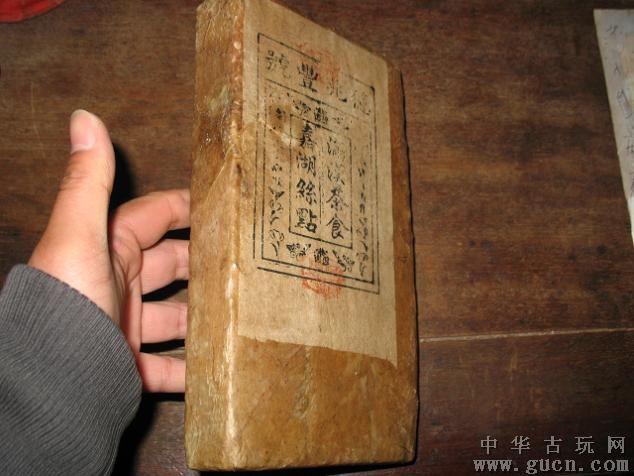 兆豐號
滿漢茶食
嘉湖絲點
中华古玩网
www.gucn.com